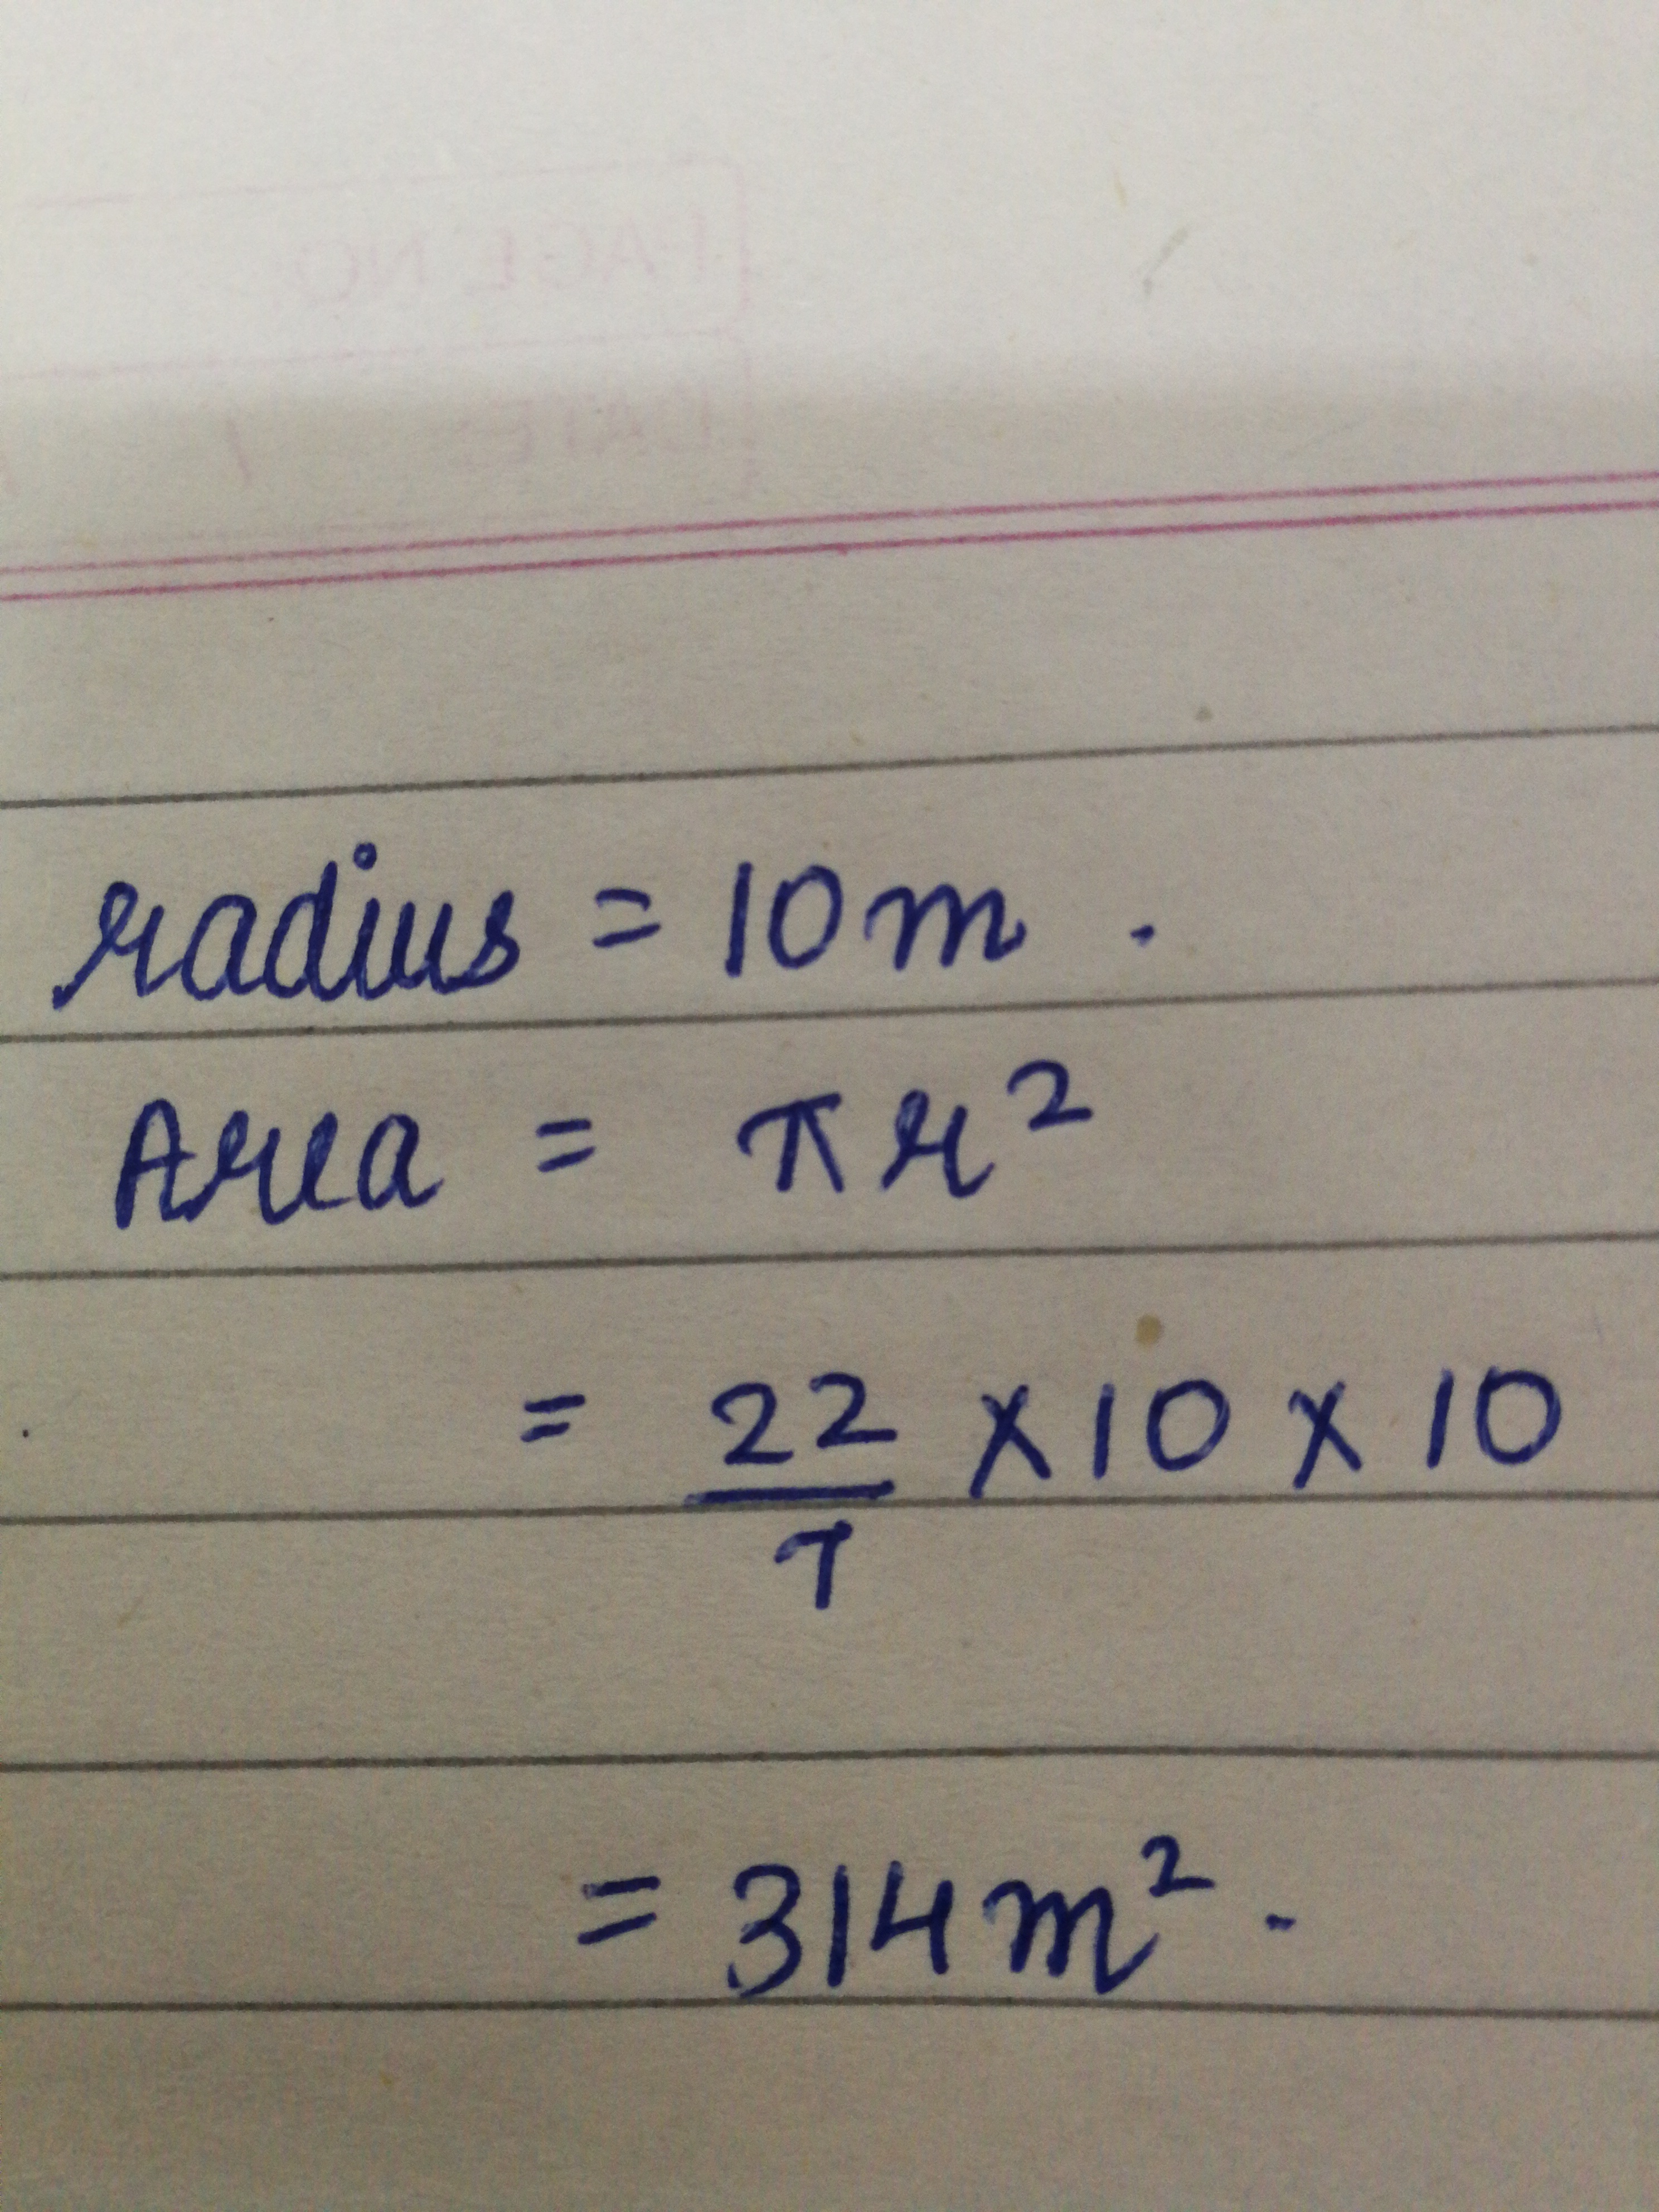 radius = 10m .
Area = πr²
= 22/7 × 10 × 10
= 314m² .